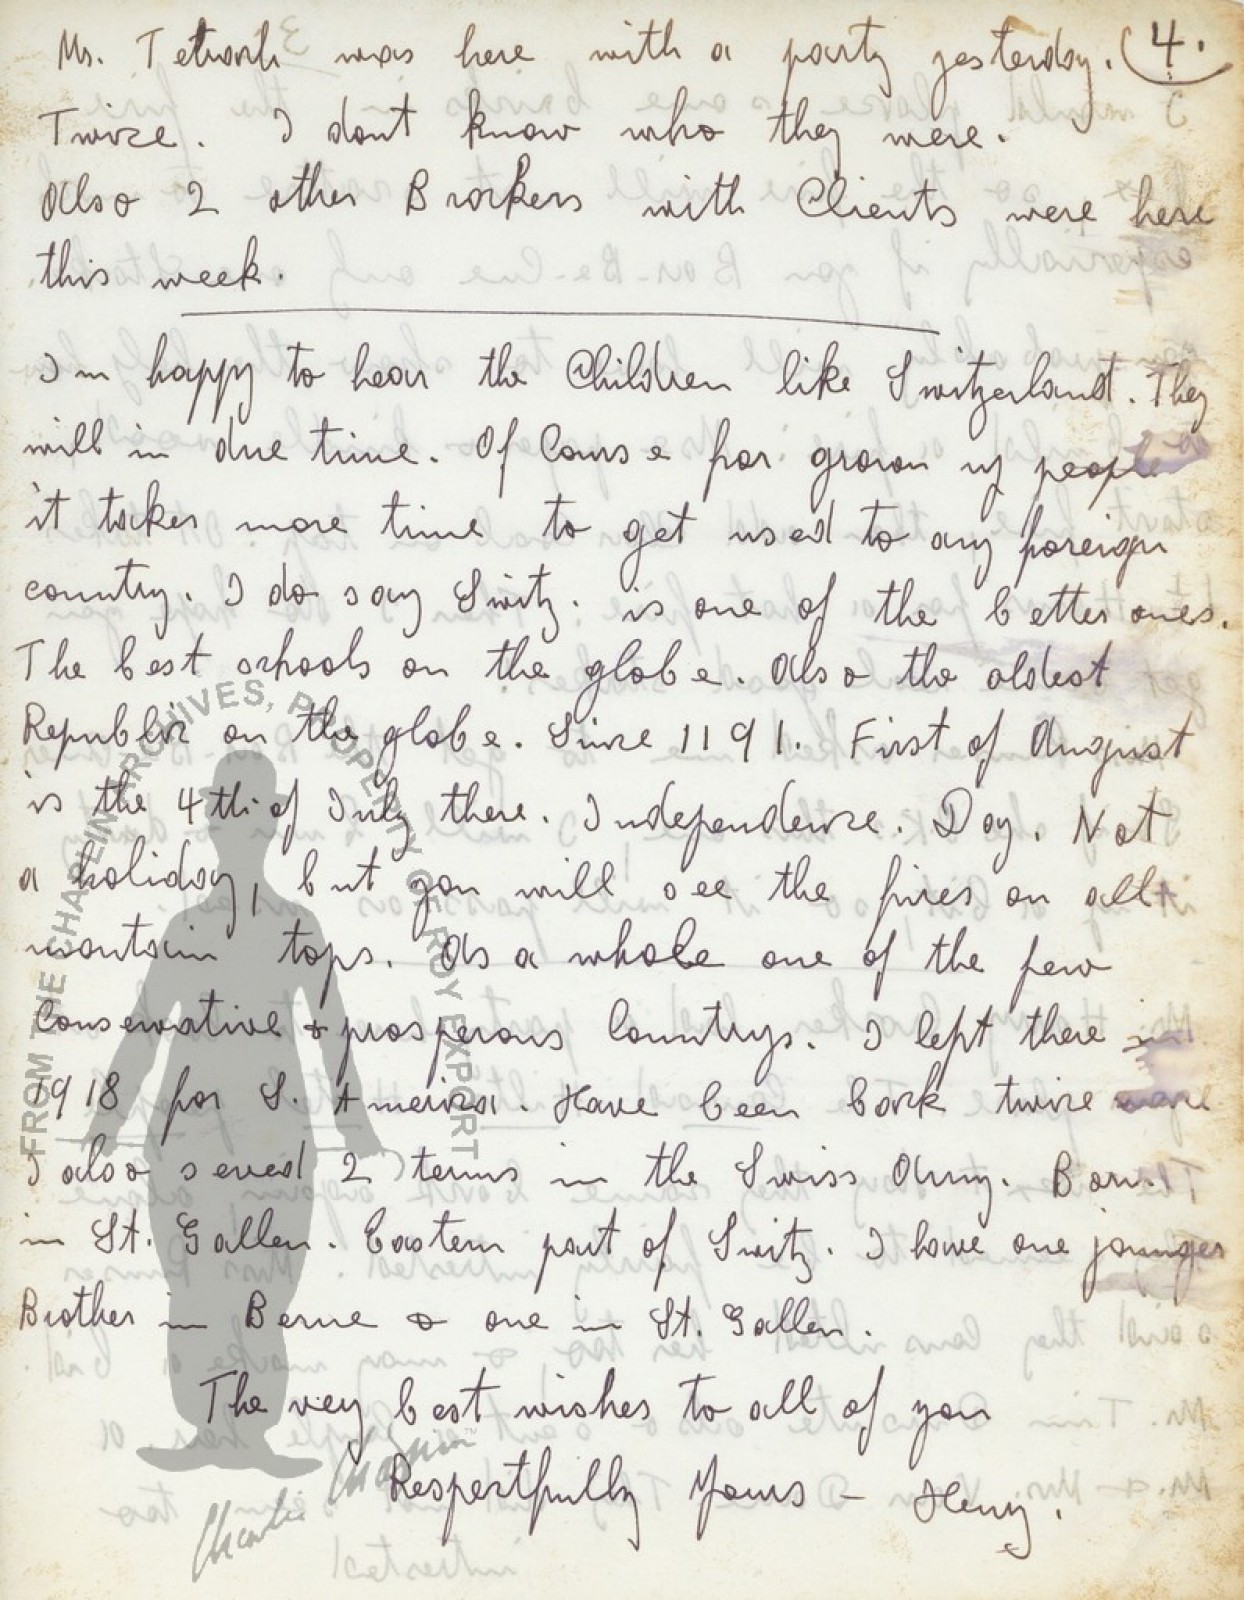 Ms. Tetrark was here with a party yesterday. 4.
Twice. I dont know who they were.
Also 2 other Brokers with Clients were here
this week.
I m happy to hear the Children like Switzerland. They
will in due time. Of Course for grown up people
it takes more time to get used to any foreign
country. I do say Switz. is one of the better ones.
The best schools on the globe. Also the oldest
Republic on the globe. Since 1191. First of August
is the 4th of July there. Independence. Day. Not
a holiday, but you will see the fires on all
montain tops. As a whole one of the few
Conservative & prosperous Countrys. I left there in
1918 for S. America. Have been back twice
I also served 2 terms in the Swiss Army. Born.
in St. Gallen. Eastern part of Switz. I have one younger
Brother in Berne & one in St. Gallen.
The very best wishes to all of you
Respectfully Yours - Henry.
FROM THE CHAPLIN ARCHIVES, PROPERTY OF ROY EXPORT
Charlie Chaplin